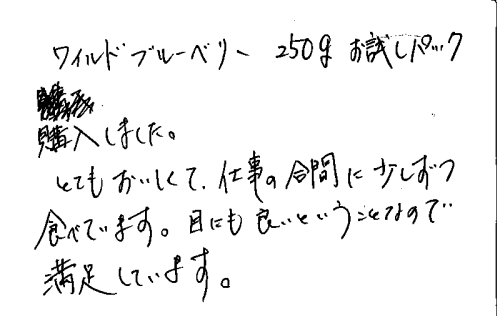 ワイルドブルーベリー 250g お試しパック
購入しました。
とてもおいしくて、仕事の合間に少しずつ
食べています。目にも良いということなので
満足しています。